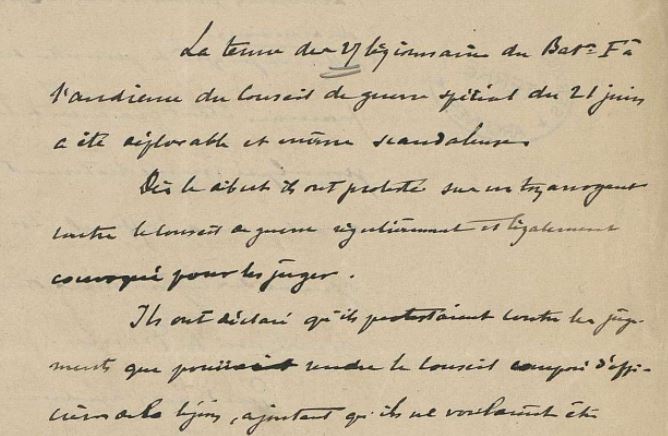 La tenue des 27 légionnaires du Bat.on F à
l'audience du Conseil de guerre spécial du 21 juin
a été déplorable et même scandaleuse.
Dès le début ils ont protesté sur un ton arrogant
contre le Conseil de guerre régulièrement et légalement
convoqué pour les juger.
Ils ont déclaré qu'ils protestaient contre les juge-
ments que pourrait rendre le Conseil composé d'offi-
ciers de la légion, ajoutant qu'ils ne voulaient être